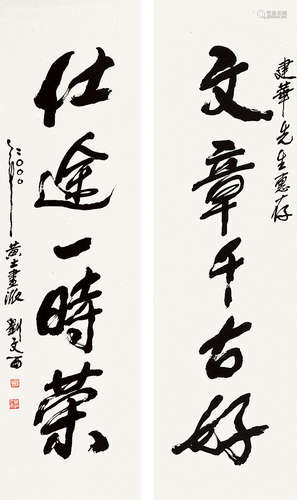 建華先生惠存
文章千古好
仕途一時榮
二〇〇〇年
黄土畫派 劉文西